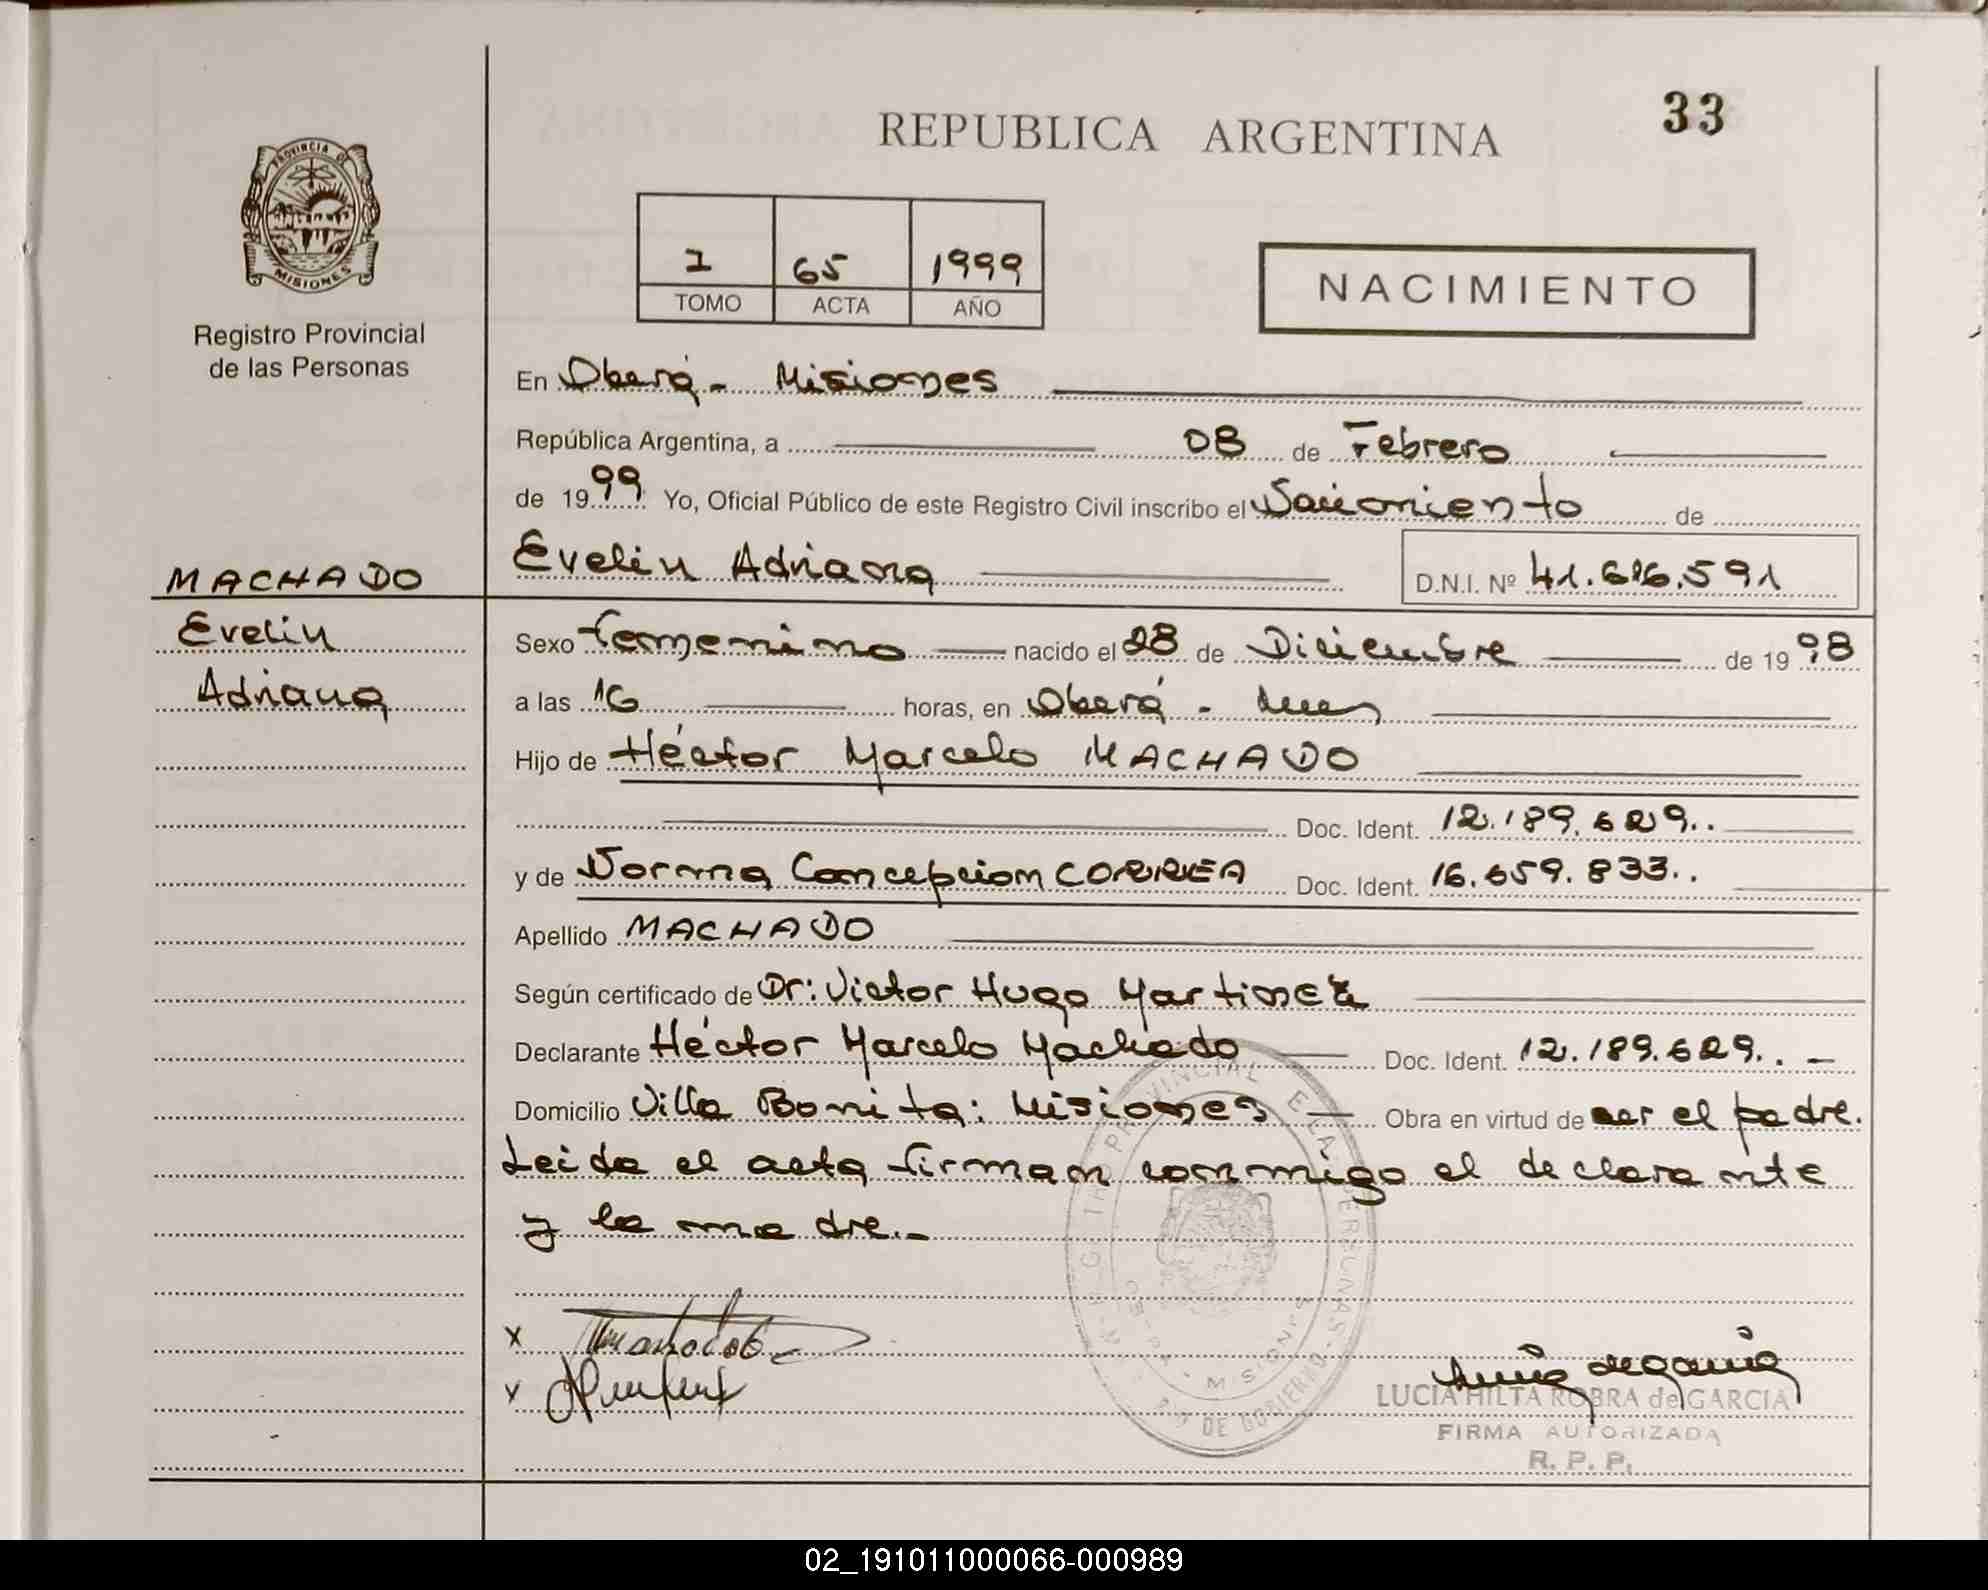 33
REPUBLICA ARGENTINA
PROVINCIA DE
MISIONES
Registro Provincial
de las Personas
I 65 1999
TOMO ACTA AÑO
NACIMIENTO
En Oberá - Misiones
República Argentina, a 08 de Febrero
de 1999 Yo, Oficial Público de este Registro Civil inscribo el Nacimiento de
MACHADO Evelin Adriana D.N.I. Nº 41.616.591
Evelin
Adriana
Sexo femenino nacido el 28 de Diciembre de 1998
a las 16 horas, en Oberá - Mnes
Hijo de Héctor Marcelo MACHADO
Doc. Ident. 12.189.629..
y de Norma Concepcion CORREA Doc. Ident. 16.659.833..
Apellido MACHADO
Según certificado de Dr: Victor Hugo Martinez
Declarante Héctor Marcelo Machado Doc. Ident. 12.189.629.. -
Domicilio Villa Bonita: Misiones Obra en virtud de ser el padre.
Leida el acta firman conmigo el declarante
y la madre.-
x
y
LUCIA HILTA ROBRA de GARCIA
FIRMA AUTORIZADA
R. P. P.
02_191011000066-000989